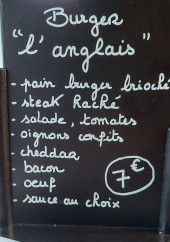 Burger
"l'anglais"
- pain burger brioché
- steak Raché
- salade, tomates
- oignons confits
- cheddar
- bacon
- oeuf
- sauce au choix
7€